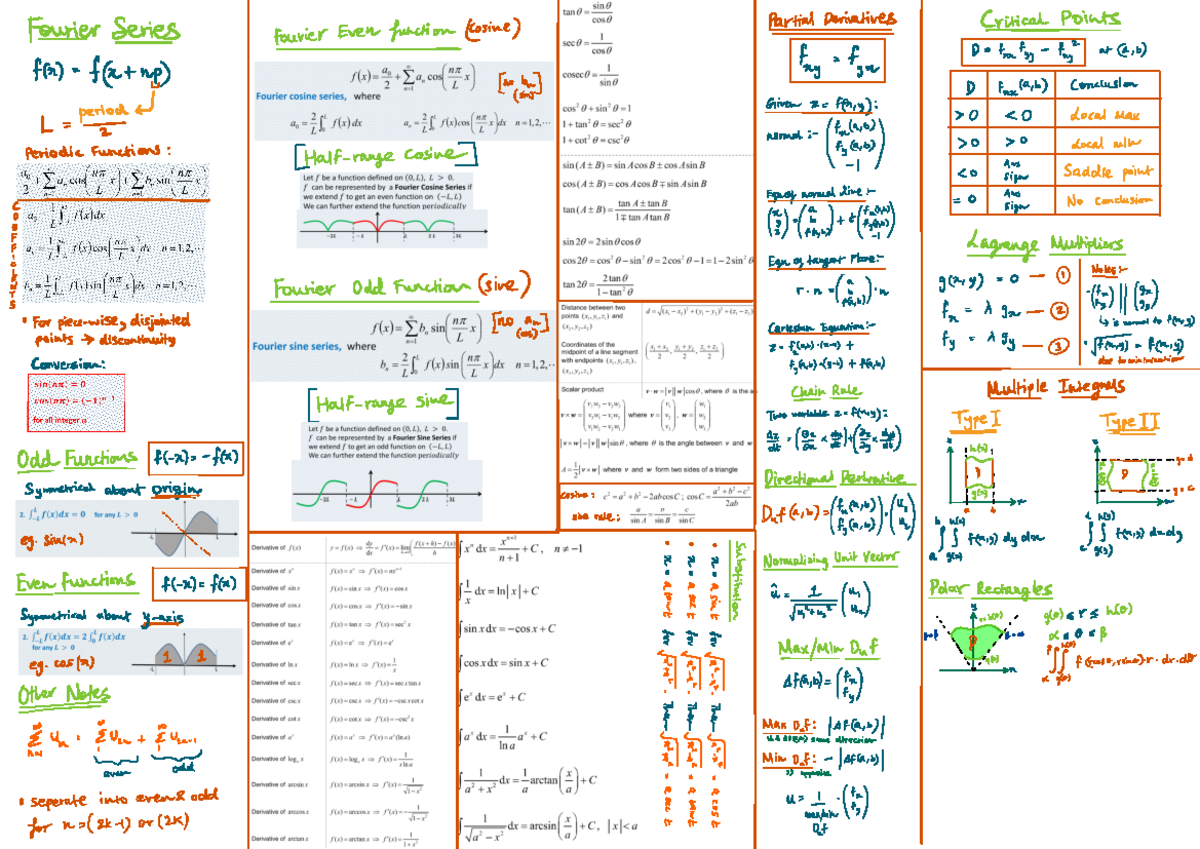 Fourier Series
f(x) = f(x + np)
period
L = period/2
Periodic Functions:
a₀/2 + ∑ aₙ cos(nπ/L x) + ∑ bₙ sin(nπ/L x)
Coefficients
a₀ = 1/L ∫ f(x)dx
aₙ = 1/L ∫ f(x)cos(nπ/L x)dx n=1,2,⋯
bₙ = 1/L ∫ f(x)sin(nπ/L x)dx n=1,2,⋯
• For piece-wise, disjointed
points → discontinuity
Conversion:
sin(nπ) = 0
for all integer n
Odd Functions f(-x) = -f(x)
Symmetrical about origin
2. ∫₋L^L f(x)dx = 0 for any L > 0
eg. sin(x)
Even Functions f(-x) = f(x)
Symmetrical about y-axis
2. ∫₋L^L f(x)dx = 2 ∫₀^L f(x)dx
for any L > 0
eg. cos(x)
Other Notes
even odd
• seperate into even & odd
for n = (2k-1) or (2k)
Fourier Even function (cosine)
f(x) = a₀/2 + ∑ aₙ cos(nπ/L x)
[no bₙ (sin)]
Fourier cosine series, where
a₀ = 2/L ∫₀^L f(x)dx aₙ = 2/L ∫₀^L f(x)cos(nπ/L x)dx n=1,2,⋯
[Half-range Cosine]
Let f be a function defined on (0, L), L > 0.
f can be represented by a Fourier Cosine Series if
we extend f to get an even function on (−L, L)
We can further extend the function periodically
Fourier Odd Function (sine)
f(x) = ∑ bₙ sin(nπ/L x)
[no aₙ (cos)]
Fourier sine series, where
bₙ = 2/L ∫₀^L f(x)sin(nπ/L x)dx n=1,2,⋯
[Half-range sine]
Let f be a function defined on (0, L), L > 0.
f can be represented by a Fourier Sine Series if
we extend f to get an odd function on (−L, L)
We can further extend the function periodically
tan θ = sin θ/cos θ
sec θ = 1/cos θ
cosec θ = 1/sin θ
cos² θ + sin² θ = 1
1 + tan² θ = sec² θ
1 + cot² θ = csc² θ
sin(A ± B) = sin A cos B ± cos A sin B
cos(A ± B) = cos A cos B ∓ sin A sin B
tan(A ± B) = (tan A ± tan B)/(1 ∓ tan A tan B)
sin 2θ = 2 sin θ cos θ
cos 2θ = cos² θ − sin² θ = 2 cos² θ − 1 = 1 − 2 sin² θ
tan 2θ = 2 tan θ/(1 − tan² θ)
Distance between two
points (x₁,y₁,z₁) and
(x₂,y₂,z₂)
d = √((x₁ − x₂)² + (y₁ − y₂)² + (z₁ − z₂)
Coordinates of the
midpoint of a line segment
with endpoints (x₁,y₁,z₁),
(x₂,y₂,z₂)
((x₁+x₂)/2, (y₁+y₂)/2, (z₁+z₂)/2)
Scalar product
v·w = |v||w|cos θ, where θ is the a
|v × w| = |v||w| sin θ, where θ is the angle between v and w
A = 1/2 |v × w| where v and w form two sides of a triangle
cosine: c² = a² + b² − 2ab cos C ; cos C = (a² + b² − c²)/2ab
sine rule: a/sin A = b/sin B = c/sin C
Derivative of f(x)
Derivative of xⁿ f(x) = xⁿ ⇒ f′(x) = nxⁿ⁻¹
Derivative of sin x f(x) = sin x ⇒ f′(x) = cos x
Derivative of cos x f(x) = cos x ⇒ f′(x) = −sin x
Derivative of tan x f(x) = tan x ⇒ f′(x) = sec² x
Derivative of eˣ f(x) = eˣ ⇒ f′(x) = eˣ
Derivative of ln x f(x) = ln x ⇒ f′(x) = 1/x
Derivative of sec x f(x) = sec x ⇒ f′(x) = sec x tan x
Derivative of csc x f(x) = csc x ⇒ f′(x) = −csc x cot x
Derivative of cot x f(x) = cot x ⇒ f′(x) = −csc² x
Derivative of aˣ f(x) = aˣ ⇒ f′(x) = aˣ(ln a)
Derivative of logₐ x f(x) = logₐ x ⇒ f′(x) = 1/(x ln a)
Derivative of arcsin x f(x) = arcsin x ⇒ f′(x) = 1/√(1−x²)
Derivative of arccos x f(x) = arccos x ⇒ f′(x) = −1/√(1−x²)
Derivative of arctan x f(x) = arctan x ⇒ f′(x) = 1/(1+x²)
∫ xⁿ dx = xⁿ⁺¹/(n+1) + C, n ≠ −1
∫ 1/x dx = ln|x| + C
∫ sin x dx = −cos x + C
∫ cos x dx = sin x + C
∫ eˣ dx = eˣ + C
∫ aˣ dx = 1/ln a aˣ + C
∫ 1/(a² + x²) dx = 1/a arctan(x/a) + C
∫ 1/√(a² − x²) dx = arcsin(x/a) + C, |x| < a
Substitution
Partial Derivatives
f_xy = f_yx
Given z = f(x,y):
normal :- (f_x(a,b), f_y(a,b), -1)
Eqn of normal line :-
Eqn of tangent plane:-
r · n = (a, b, f(a,b)) · n
Cartesian Equation:-
z = f_x(a,b)·(x-a) +
f_y(a,b)·(y-b) + f(a,b)
Chain Rule
Two variable z = f(x,y):
Directional Derivative
Normalizing Unit Vector
Max/Min Duf
Δf(a,b) = (f_x, f_y)
Max Duf: |Δf(a,b)|
Min Duf: - |Δf(a,b)|
Critical Points
D = f_xx f_yy - f_xy² at (a,b)
D f_xx(a,b) Conclusion
>0 <0 Local Max
>0 >0 Local min
<0 Any Sign Saddle point
=0 Any Sign No Conclusion
Lagrange Multipliers
g(x,y) = 0 — ①
f_x = λ g_x — ②
f_y = λ g_y — ③
Notes:-
Multiple Integrals
Type I Type II
Polar Rectangles
g(θ) ≤ r ≤ h(θ)
α ≤ θ ≤ β